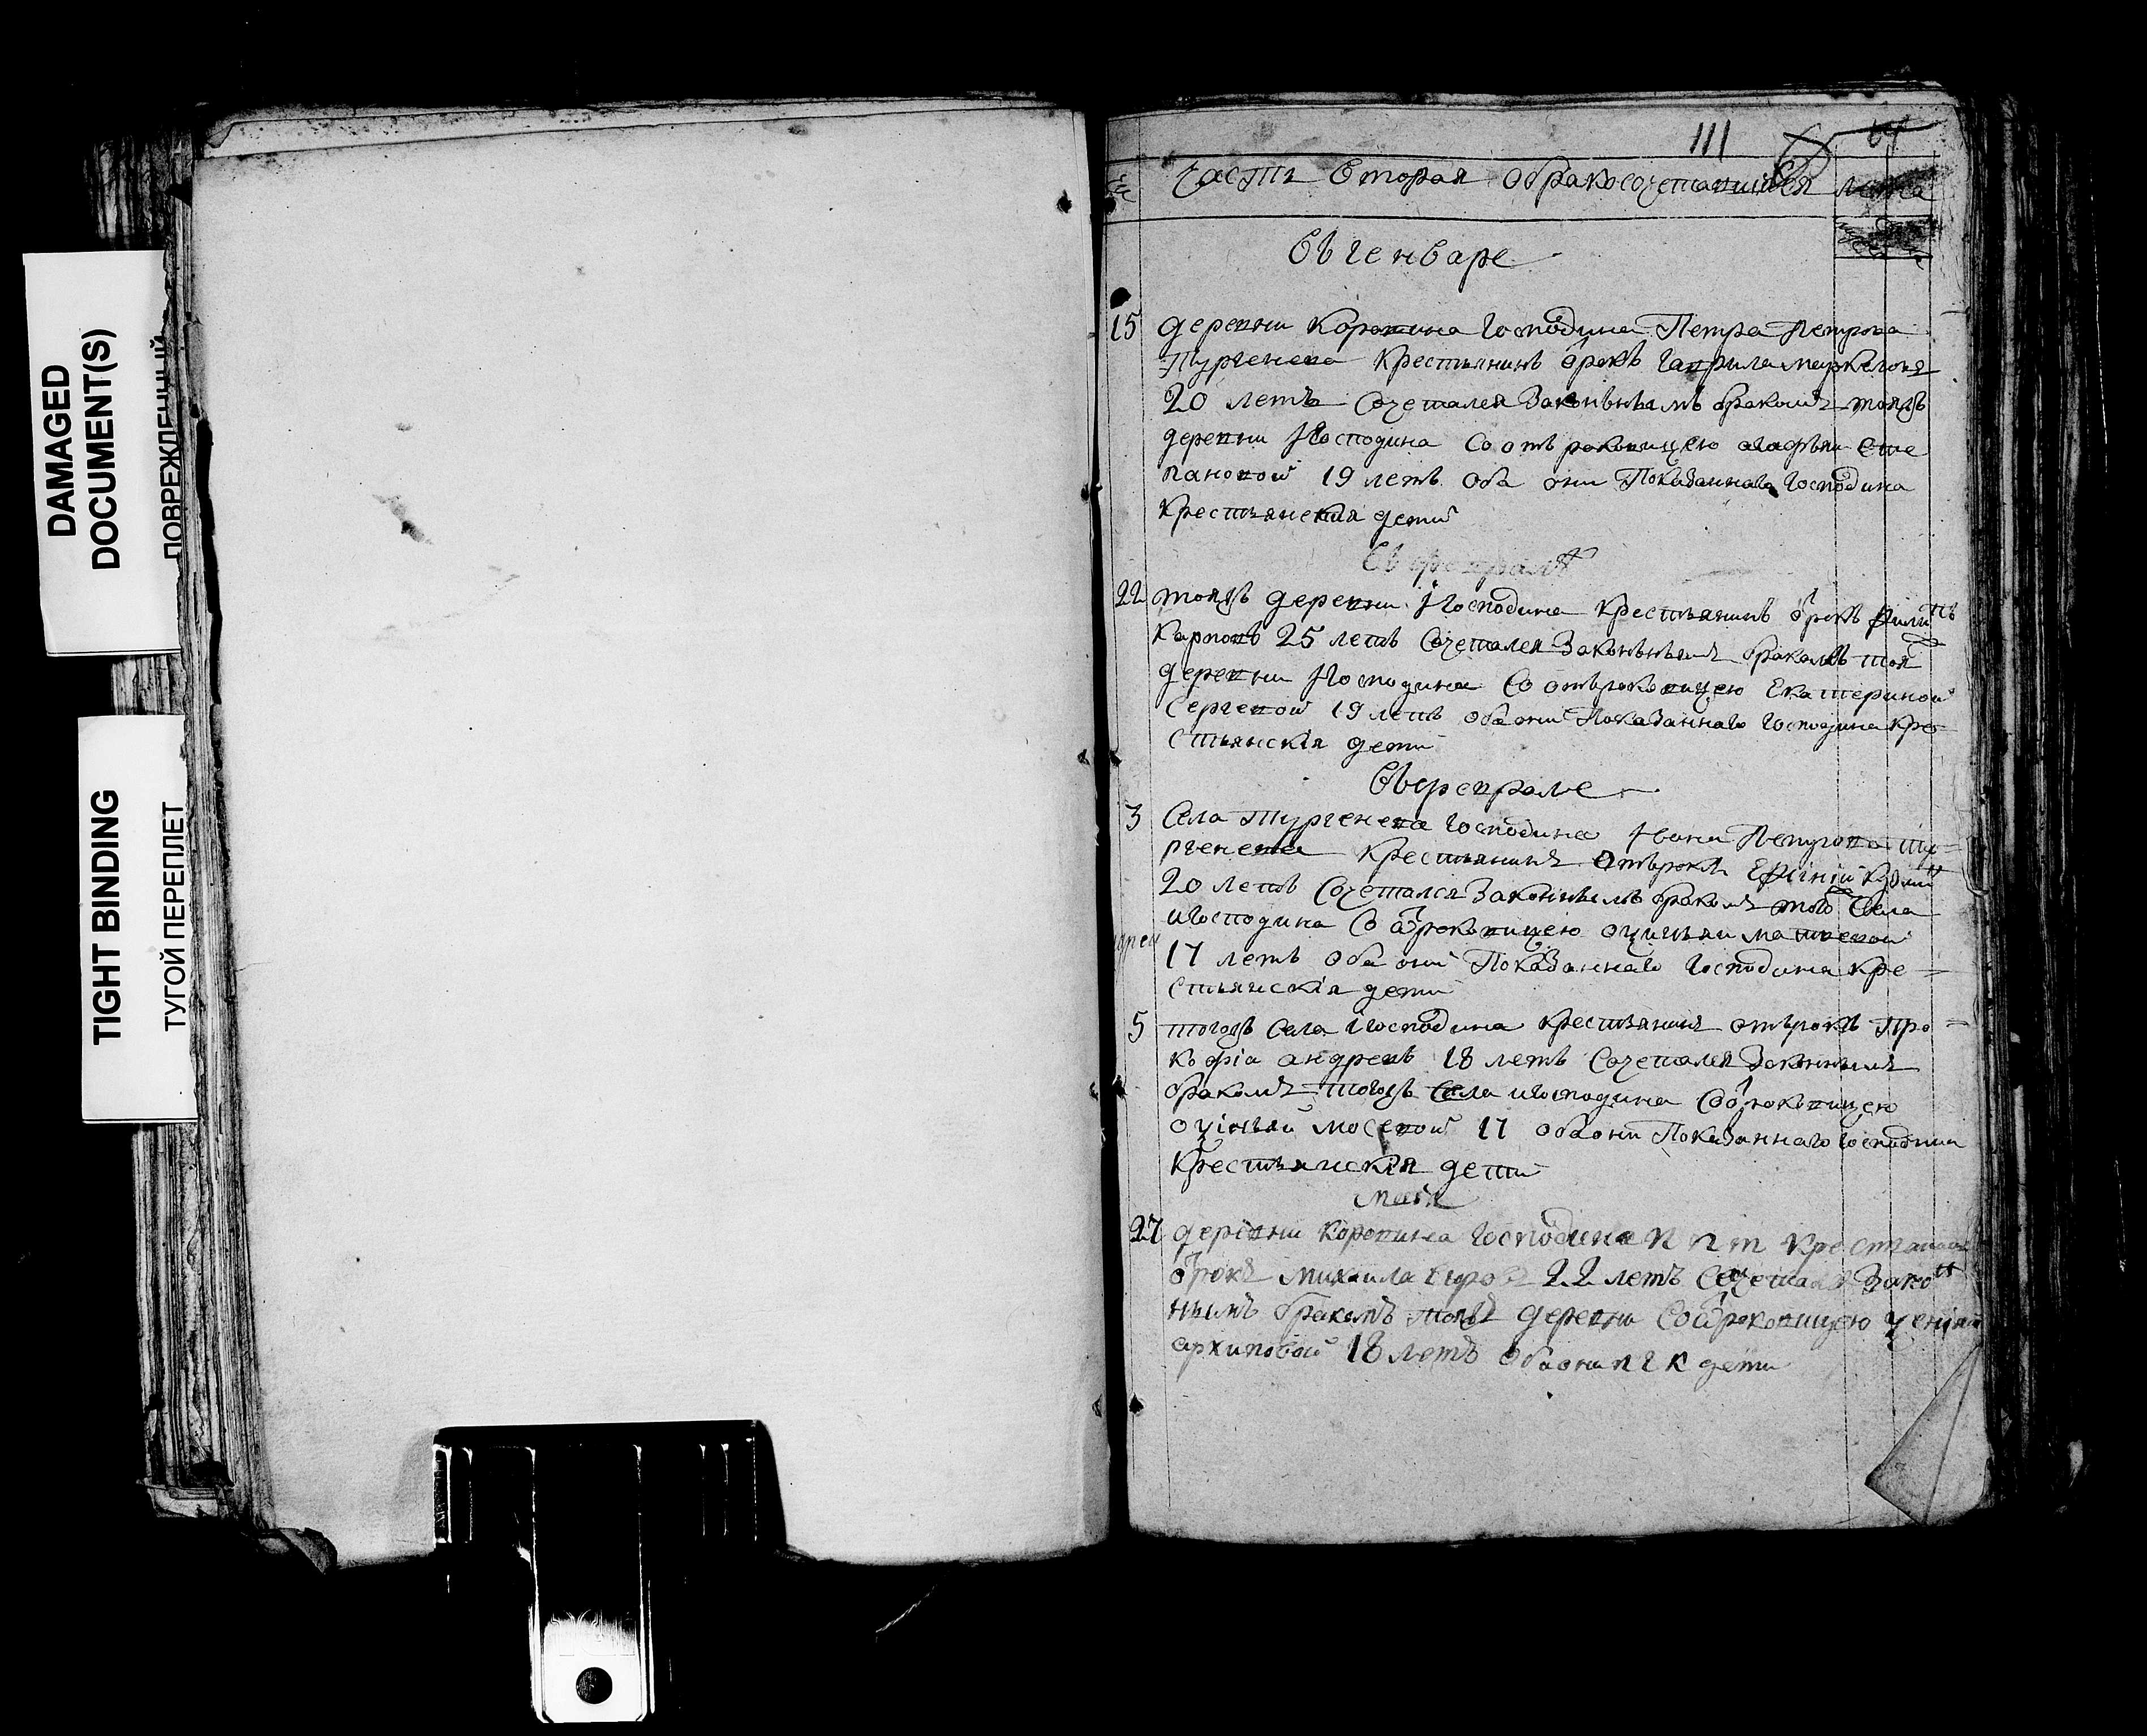 DAMAGED
DOCUMENT(S)
ПОВРЕЖДЕННЫЙ
TIGHT BINDING
ТУГОЙ ПЕРЕПЛЕТ
111
часть вторая обракосочетавшихся лета
въ генваре
15 деревни Коровина господина Петра Петрова
Тургенева крестьянинъ отрокъ гаврила маркеловъ
20 летъ сочетался законнымъ бракомъ тояжъ
деревни Iгосподина со отроковицею агафьи сте
пановой 19 летъ оба они показаннаго господина
крестьянския дети
въ феврале
22 тояжъ деревни Iгосподина крестьянинъ отрокъ филипъ
карповъ 25 летъ сочетался законнымъ бракомъ тоя
деревни Iгосподина со отроковицею екатериной
сергевой 19 летъ оба они показаннаго господина кре
стьянскiя дети
въ феврале
3 села тургенева господина Iвана Петрова ту=
ргенева крестьянинъ отърокъ
20 летъ сочетался законнымъ бракомъ того села
игосподина со отроковицею матвевой
17 летъ оба они показаннаго господина кре=
стьянскiя дети
5 тогожъ села Iгосподина крестьянинъ отърокъ про=
кофiа андревъ 18 летъ сочетался законнымъ
бракомъ тогожъ села игосподина со отроковицею
мосевой 17 оба они показаннаго господина
крестьянскiя дети
маiя
27 деревни коровина господина п п т крестьянинъ
отрокъ михаила 22 летъ сочетался зако
ннымъ бракомъ тояжъ деревни со отроковицею
архиповой 18 летъ оба они п г к дети